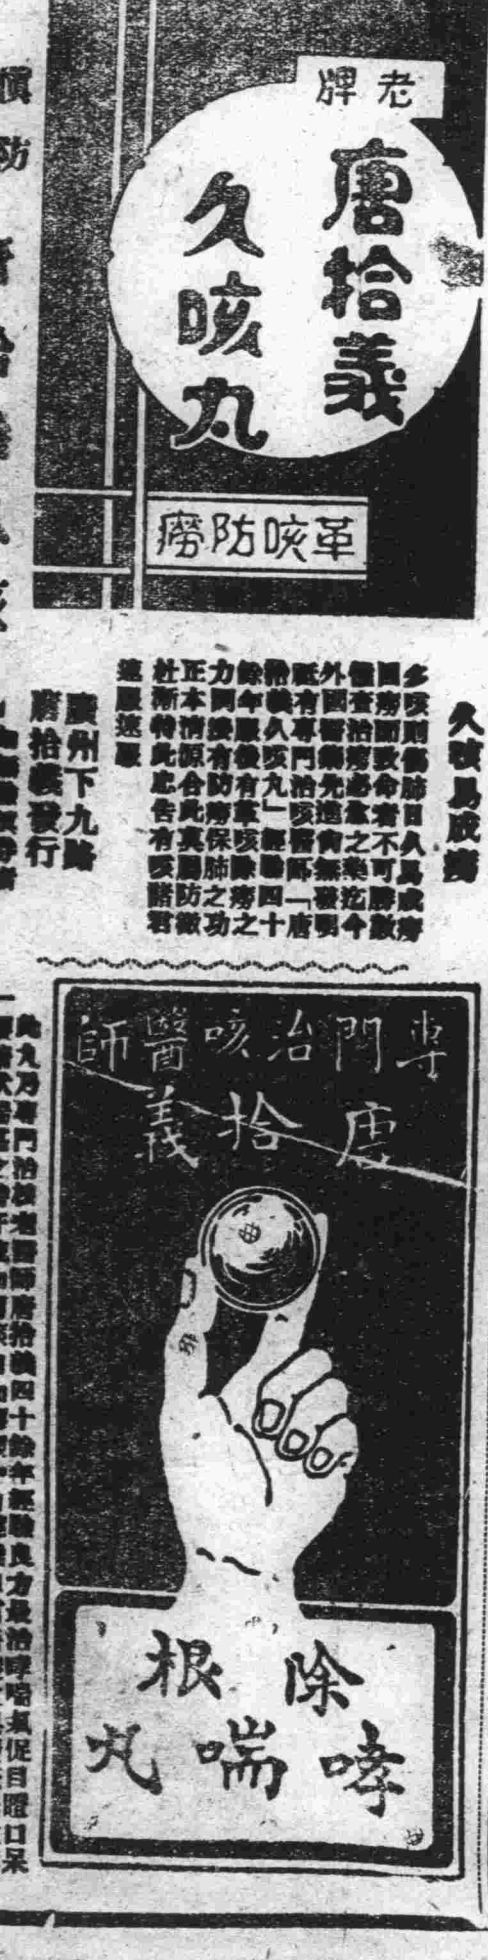 老牌
唐拾義
久咳丸
革咳防癆
久咳易成癆
多咳則傷肺日久易成癆
因癆而致命者不可勝數
惟查治癆必靈之藥迄今
外國醫藥先進尚無發明
祇有專門治咳醫師「唐
拾義久咳丸」經驗四十
餘年服後有革咳除癆之
力間接有防癆保肺之功
正本清源合此莫屬防微
杜漸特此忠告有咳諸君
速服速服
廣州下九路
唐拾義發行
慎防
專門治咳醫師
唐拾義
除根
哮喘丸
此丸乃專門治咳老醫師唐拾義四十餘年經驗良方最治哮喘氣促目瞪口呆